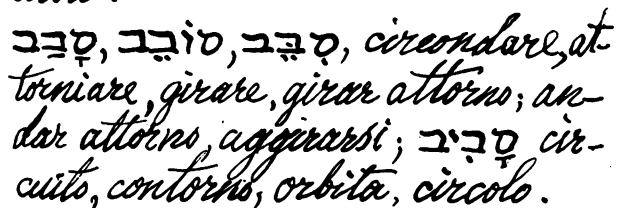 סָבַב, סוֹבֵב, סִבֵּב, circondare, at-
torniare, girare, girar attorno; an-
dar attorno, aggirarsi; סָבִיב cir-
cuito, contorno, orbita, circolo.